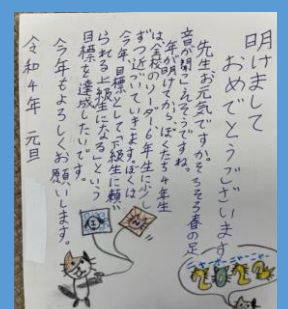 明けまして
おめでとうございます
先生お元気ですか。そろそろ春の足
音が聞こえそうですね。
年が明けてからぼくたち4年生
は全校のリーダー6年生に少し
ずつ近づいていきます。ぼくは
今年目標として「下級生に頼
られる上級生になる」という
目標を達成したいです。
今年もよろしくお願いします。
令和4年 元旦
ニャーオーニャーニャー
2022